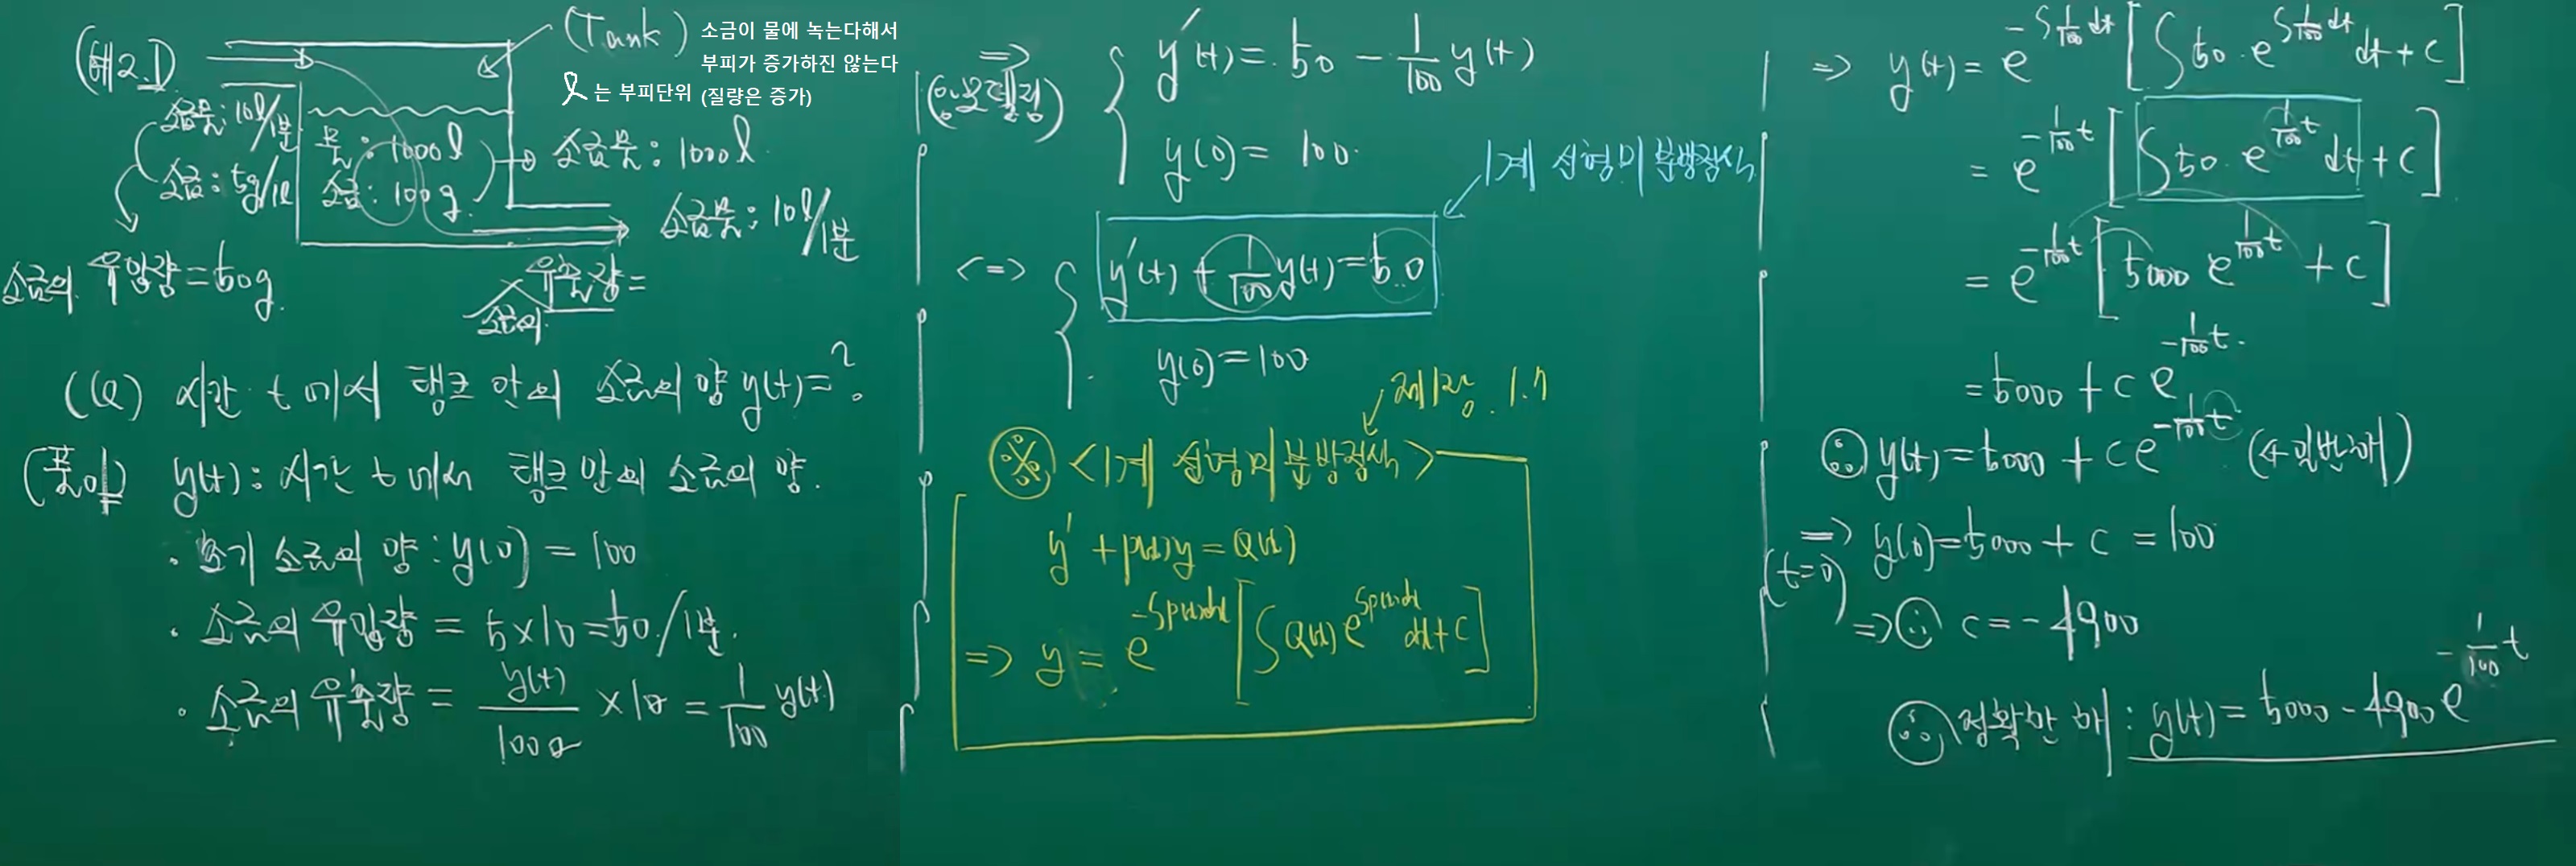 (예2.1)
(Tank)
소금이 물에 녹는다해서
부피가 증가하진 않는다
l 는 부피단위 (질량은 증가)
소금물: 10l/1분
소금: 5g/1l
물: 1000l
소금: 100g
소금물: 1000l
소금물: 10l/1분
소금의 유입량=50g
소금의 유출량=
(Q) 시간 t에서 탱크 안의 소금의 양 y(t)=?
(풀이) y(t): 시간 t에서 탱크 안의 소금의 양.
· 초기 소금의 양: y(0) = 100
· 소금의 유입량 = 5×10=50/1분.
· 소금의 유출량 = y(t)/1000 ×10 = 1/100 y(t)
=> y'(t) = 50 - 1/100 y(t)
y(0) = 100
<=> y'(t) + 1/100 y(t) = 50
y(0) = 100
1계 선형미분방정식
※ <1계 선형미분방정식>
y' + p(x)y = Q(x)
=> y = e^{-∫p(x)dx} [∫Q(x) e^{∫p(x)dx} dx + c]
=> y(t) = e^{-∫1/100 dt} [∫50·e^{∫1/100 dt} dt + c]
= e^{-1/100 t} [∫50·e^{1/100 t} dt + c]
= e^{-1/100 t} [5000 e^{1/100 t} + c]
= 5000 + c e^{-1/100 t}
∴ y(t) = 5000 + c e^{-1/100 t} (<-일반해)
=> y(0) = 5000 + c = 100
(t=0)
=> ∴ c = -4900
∴ 정확한 해: y(t) = 5000 - 4900 e^{-1/100 t}